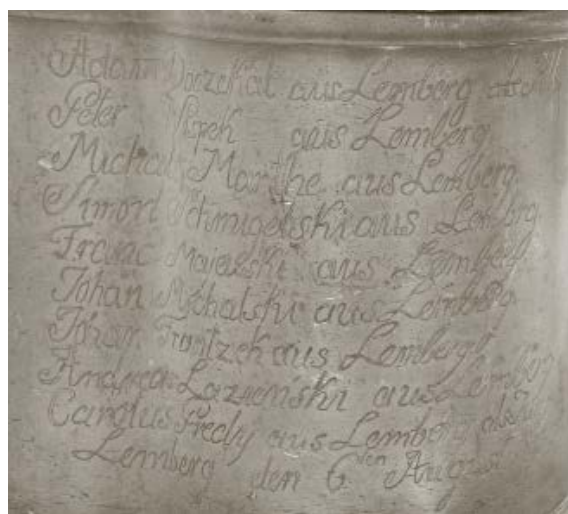 Adam Doczkal aus Lemberg
Peter Vispek aus Lemberg
Michal Marthe aus Lemberg
Simon Schmigelski aus Lemberg
Majewski aus Lemberg
Johan Michalski aus Lemberg
Johan Frantzek aus Lemberg
Andreas Lazienski aus Lemberg
Carolus Fredy aus Lemberg
Lemberg den 6ten August